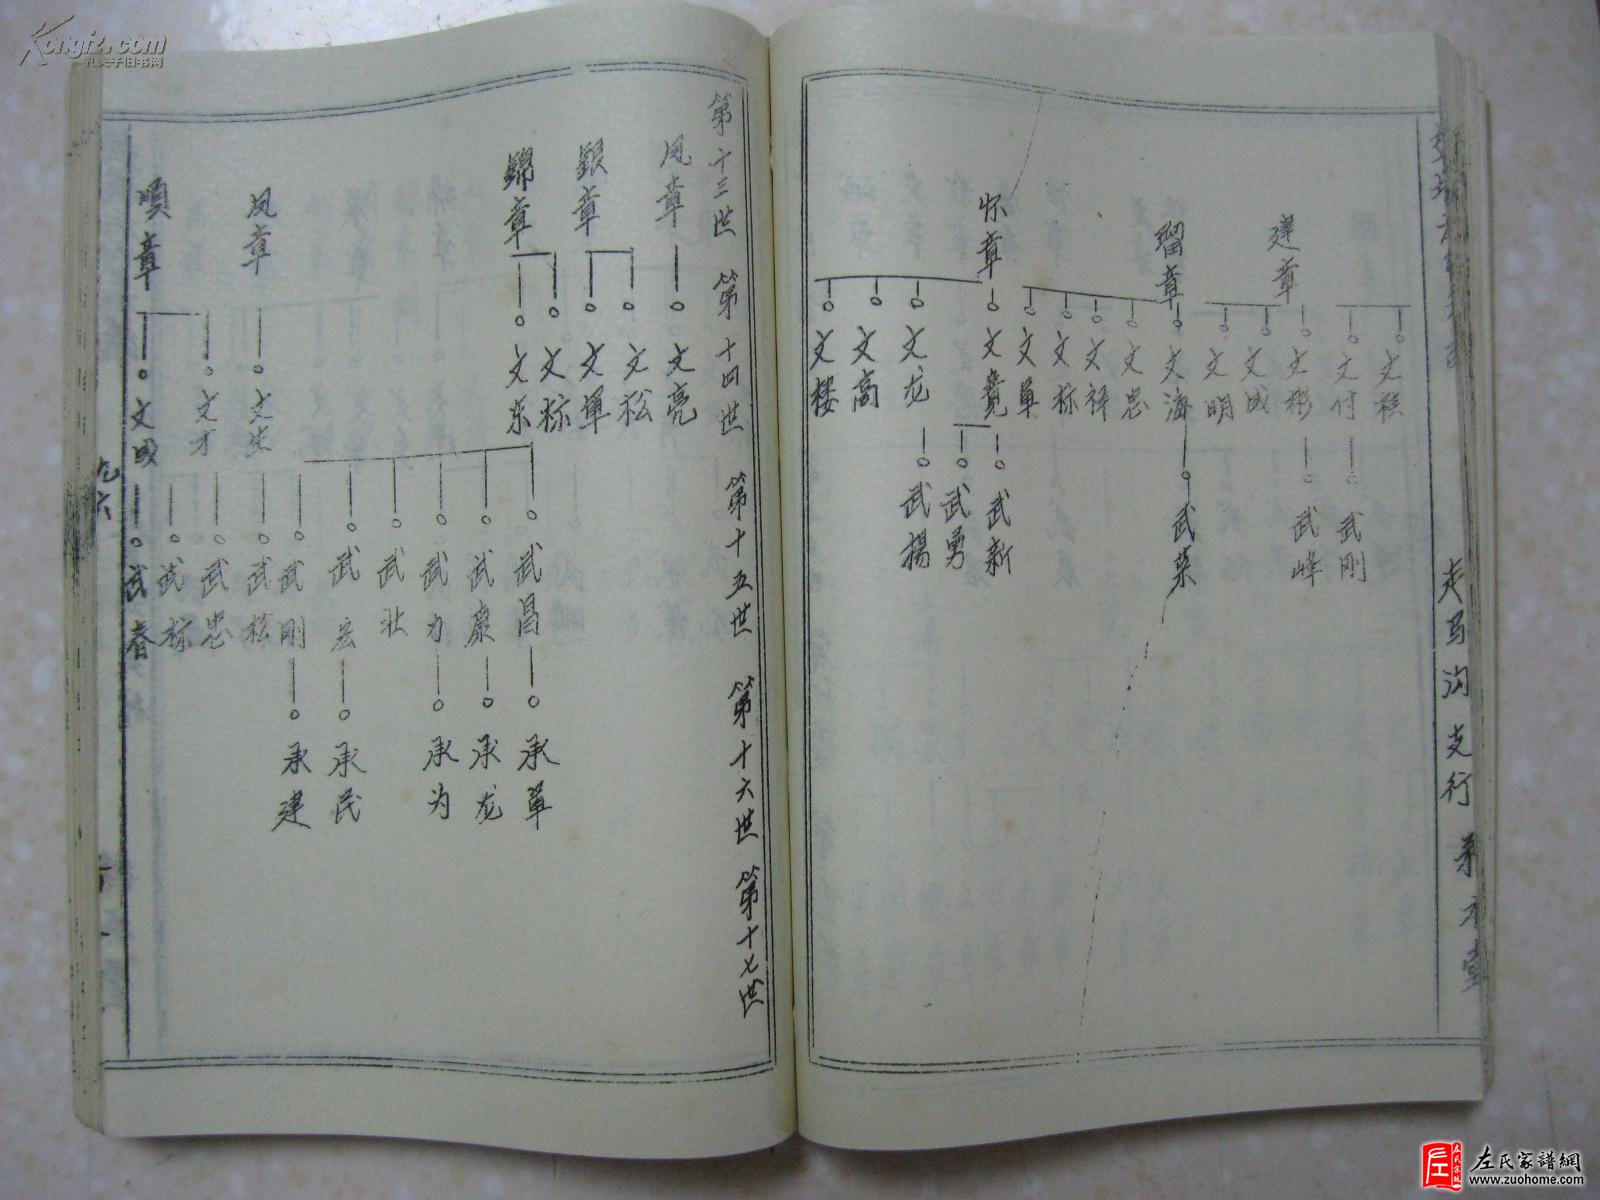 走马沟支行
建章
瑠章
怀章
文付
文彬
文成
文明
文海
文忠
文祥
文标
文單
文竟
文龙
文高
文楼
武刚
武峰
武荣
武新
武勇
武揚
第十三世 第十四世 第十五世 第十六世 第十七世
凤章
銀章
錦章
凤章
順章
文亮
文松
文單
文标
文东
文生
文才
文成
武昌
武康
武力
武壮
武宏
武刚
武松
武忠
武标
武春
承單
承龙
承为
承民
承建
九六
Kongfz.com
孔夫子旧书网
左氏家譜網
www.zuohome.com